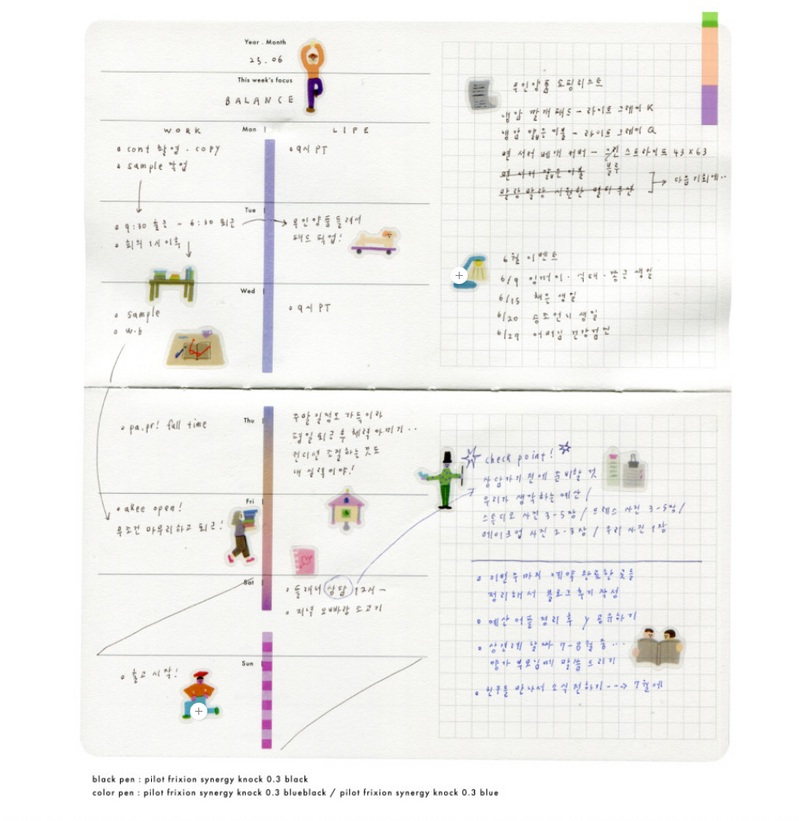 Year . Month
23.06
This week's focus
BALANCE
WORK
Mon
LIFE
cont 촬영 . copy
sample 작업
9시 PT
Tue
9:30 출근 - 6:30 퇴근
회의 1시 이후
들려서
패드 픽업!
Wed
sample
w.b
9시 PT
Thu
pa.pr! full time
주말 일정도 가득이라
평일 퇴근 후 체력 아끼기..
컨디션 조절하는 것도
내 실력이야!
Fri
akee open!
무조건 마무리하고 퇴근!
Sat
상담 12시 -
저녁 오빠랑 소고기
Sun
출고 시작!
쇼핑리스트
냉감 말개 패드 - 라이트 그레이 K
냉감 얇은 이불 - 라이트 그레이 Q
면 서커 베개 커버 - 그린 스트라이프 43 x 63
블루
다음 기회에..
6월 이벤트
6/9 생일
6/15 생일
6/20 생일
6/29 건강검진
check point!
상담가기 전에 준비할 것
우리가 생각하는 예산 /
스튜디오 사진 3-5장 / 드레스 사진 3-5장 /
메이크업 사진 2-3장 / 우리 사진 1장
이번주까지 계약 완료한 곳들
정리해서 블로그 후기 작성
예산 어플 정리 후 공유하기
상견례 날짜 7-8월 중...
양가 부모님께 말씀 드리기
친구들 만나서 소식 전하기 --> 7월에
black pen : pilot frixion synergy knock 0.3 black
color pen : pilot frixion synergy knock 0.3 blueblack / pilot frixion synergy knock 0.3 blue